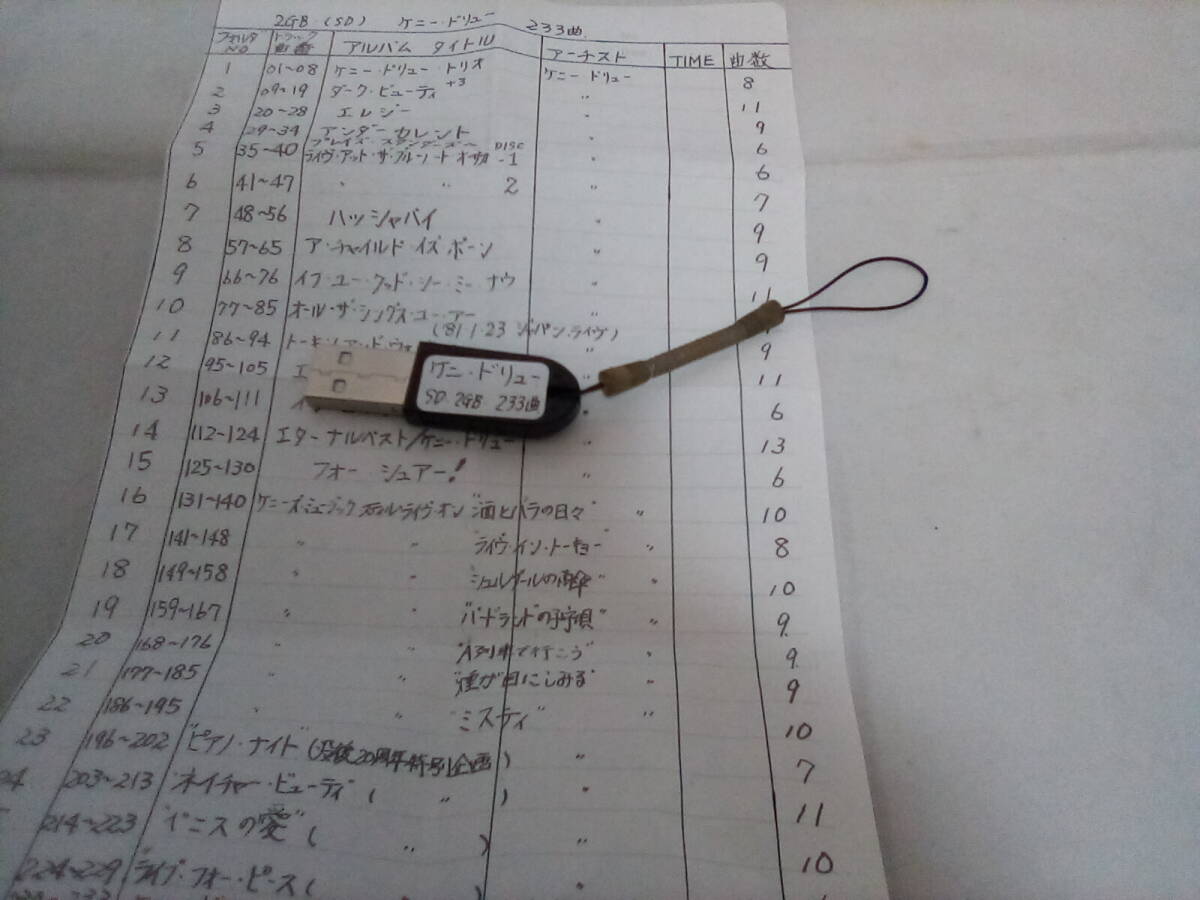 2GB (SD) ケニー・ドリュー 233曲
フォルダNO トラック 曲番 アルバム タイトル アーチスト TIME 曲数
1 01~08 ケニー・ドリュー トリオ ケニー ドリュー 8
2 09~19 ダーク・ビューティ +3 〃 11
3 20~28 エレジー 〃 9
4 29~34 アンダー カレント 〃 6
プレイズ・スタンダーズ～
5 35~40 ライヴ・アット・ザ・ブルーノート オーサカ DISC-1 〃 6
6 41~47 〃 〃 2 〃 7
7 48~56 ハッシャバイ 〃 9
8 57~65 ア・チャイルド・イズ ボーン 〃 9
9 66~76 イフ・ユー・クッド・シー・ミー ナウ 〃 11
10 77~85 オール・ザ・シングス・ユー・アー
('81.1.23 ジャパン.ライヴ)
11 86~94 トーキン・アンド・ウォ 〃 9
12 95~105 エ 11
13 106~111 〃 6
ケニ・ドリュー
SD 2GB 233曲
14 112~124 エターナルベスト/ケニー・ドリュー 〃 13
15 125~130 フォー シュアー! 〃 6
16 131~140 ケニーズ・ミュージック スティル・ライヴ・オン "酒とバラの日々" 〃 10
17 141~148 〃 〃 "ライヴ・イン・トーキョー" 〃 8
18 149~158 〃 〃 "シェルブールの雨傘" 〃 10
19 159~167 〃 〃 "バードランドの子守唄" 〃 9
20 168~176 〃 〃 "A列車で行こう" 〃 9
21 177~185 〃 〃 "煙が目にしみる" 〃 9
22 186~195 〃 〃 "ミスティ" 〃 10
23 196~202 "ピアノ・ナイト" (没後20周年特別企画) 〃 7
24 203~213 "ネイチャー・ビューティ" ( 〃 ) 〃 11
214~223 "ベニスの愛" ( 〃 ) 〃 10
224~229 "ライブ・フォー・ピース ( 〃